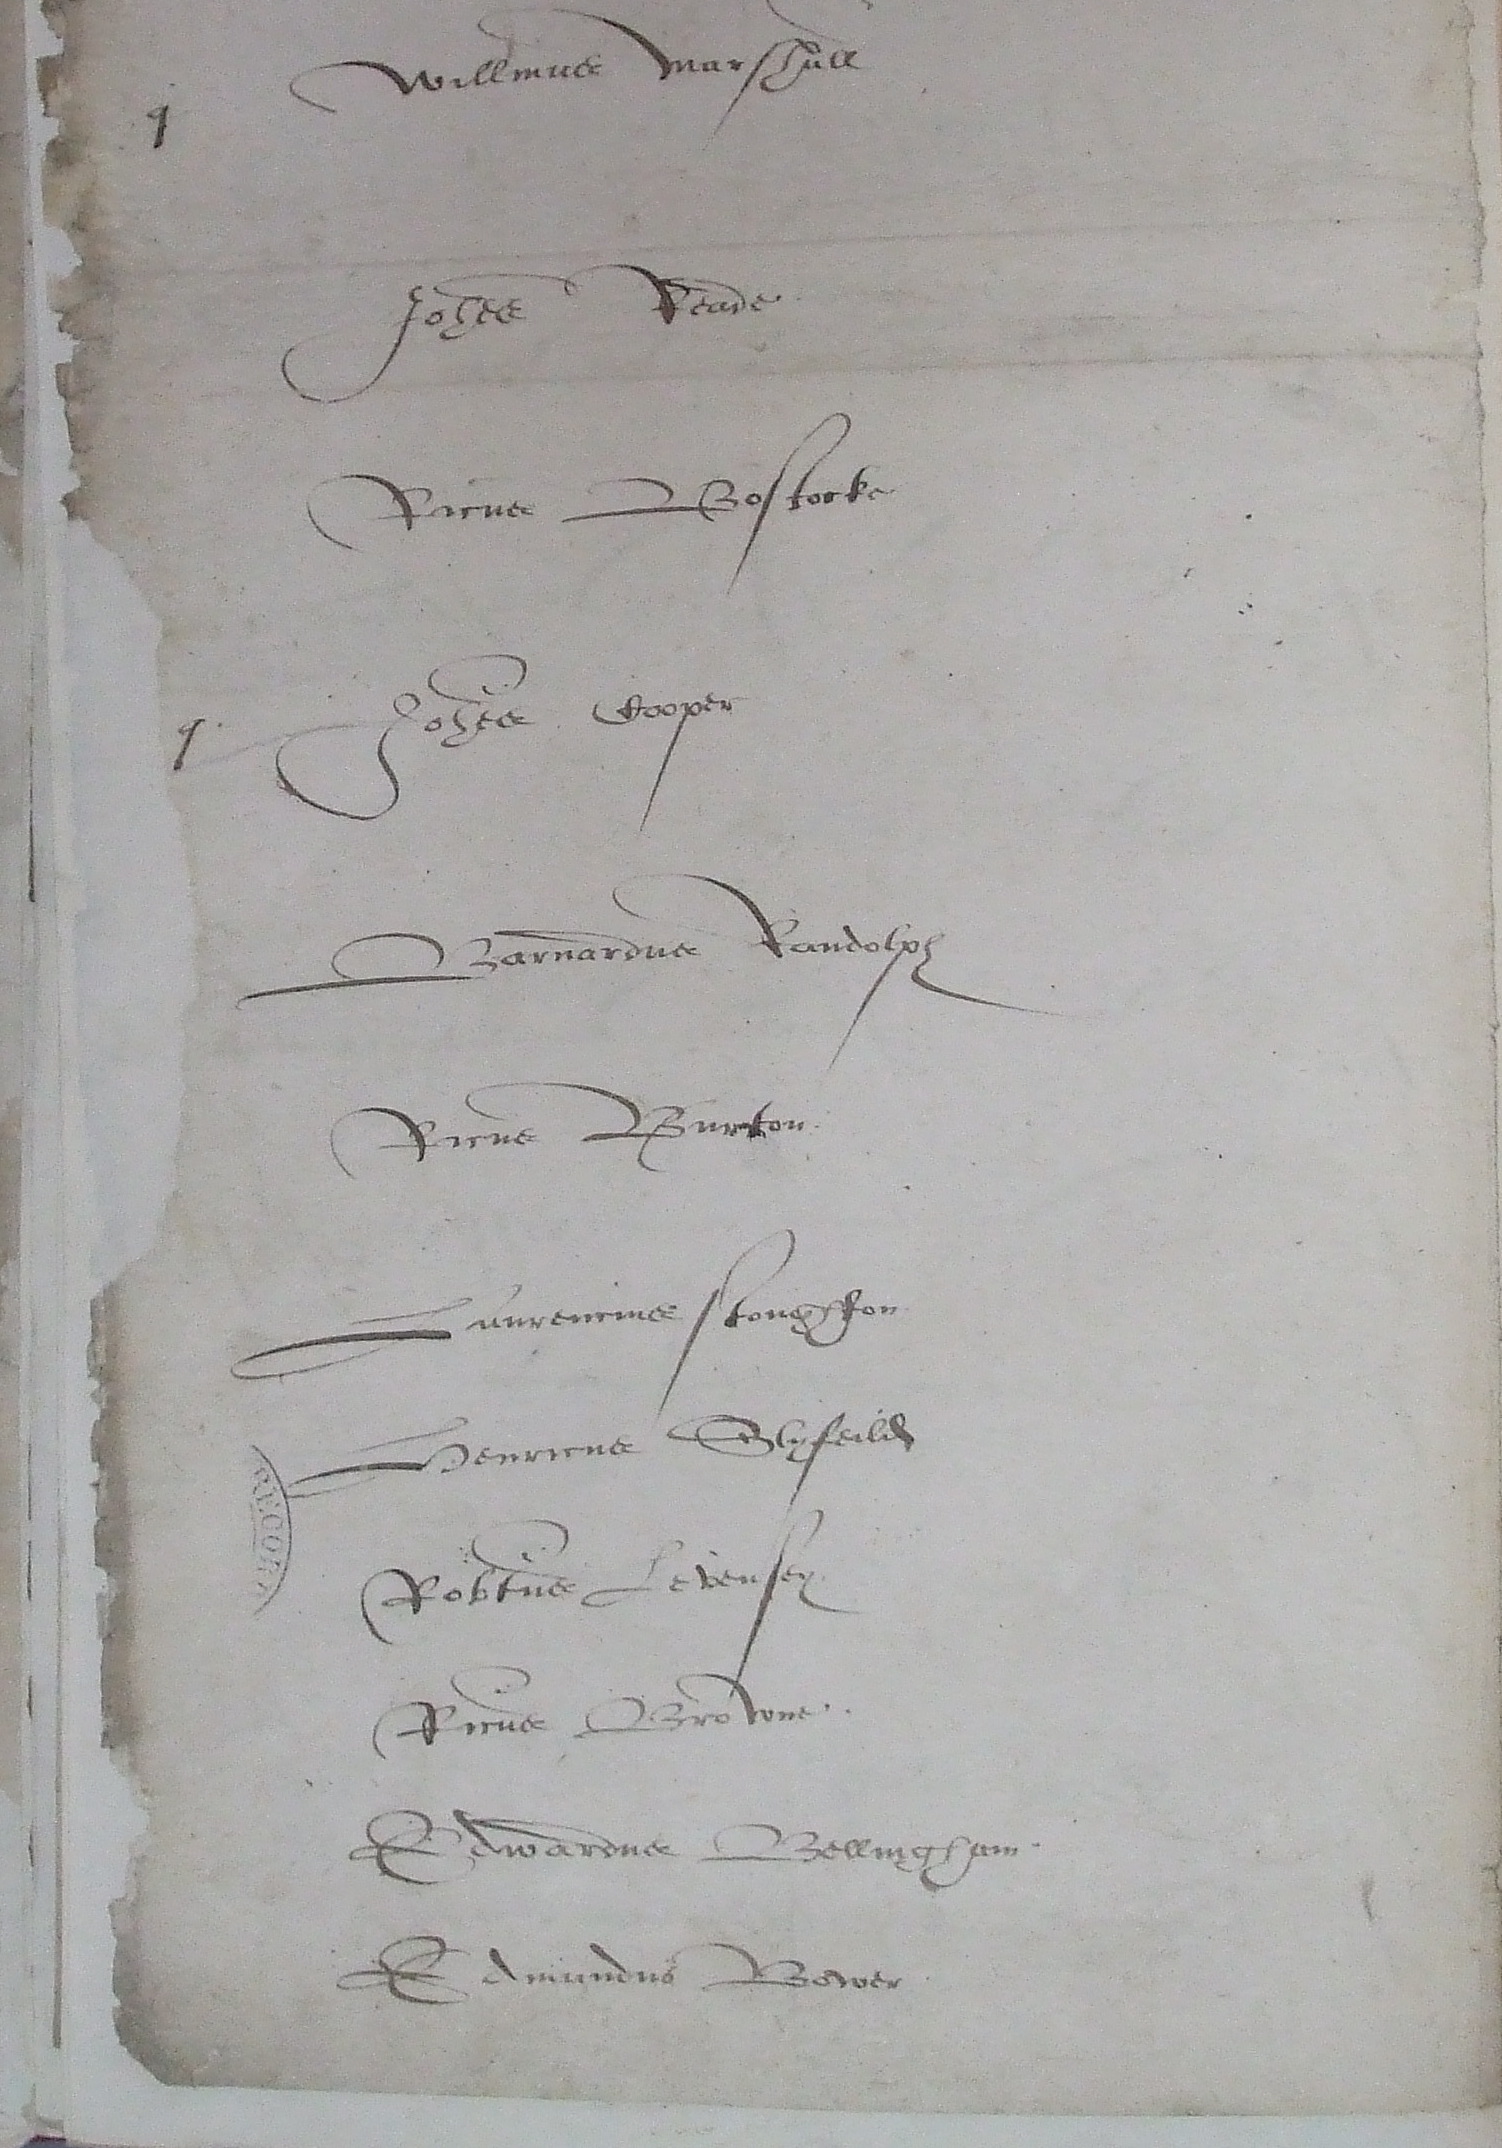 Willmus Marshall
q
Johes Reade
Ricus Bostocke
q Johes Cooper
Barnardus Randolph
Ricus Burton
Laurencius Stoughton
Henricus Slyfeild
RECOR
Robtus Levensey
Ricus Browne
Edwardus Bellingham
Edmundus Bower